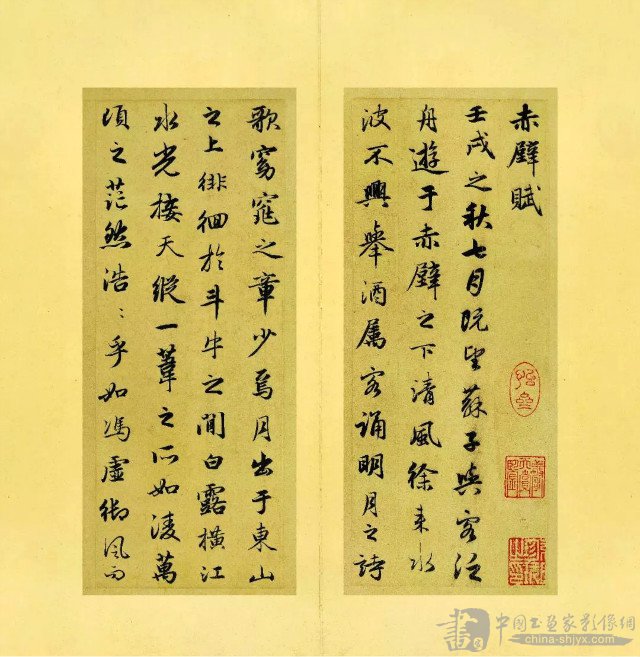 赤壁賦
壬戌之秋七月既望蘇子與客泛
舟遊于赤壁之下清風徐来水
波不興舉酒属客誦明月之詩
歌窈窕之章少焉月出于東山
之上徘徊於斗牛之間白露横江
水光接天縱一葦之所如淩萬
頃之茫然浩〻乎如馮虚御風而
書
中国书画家影像網
china-shjyx.com